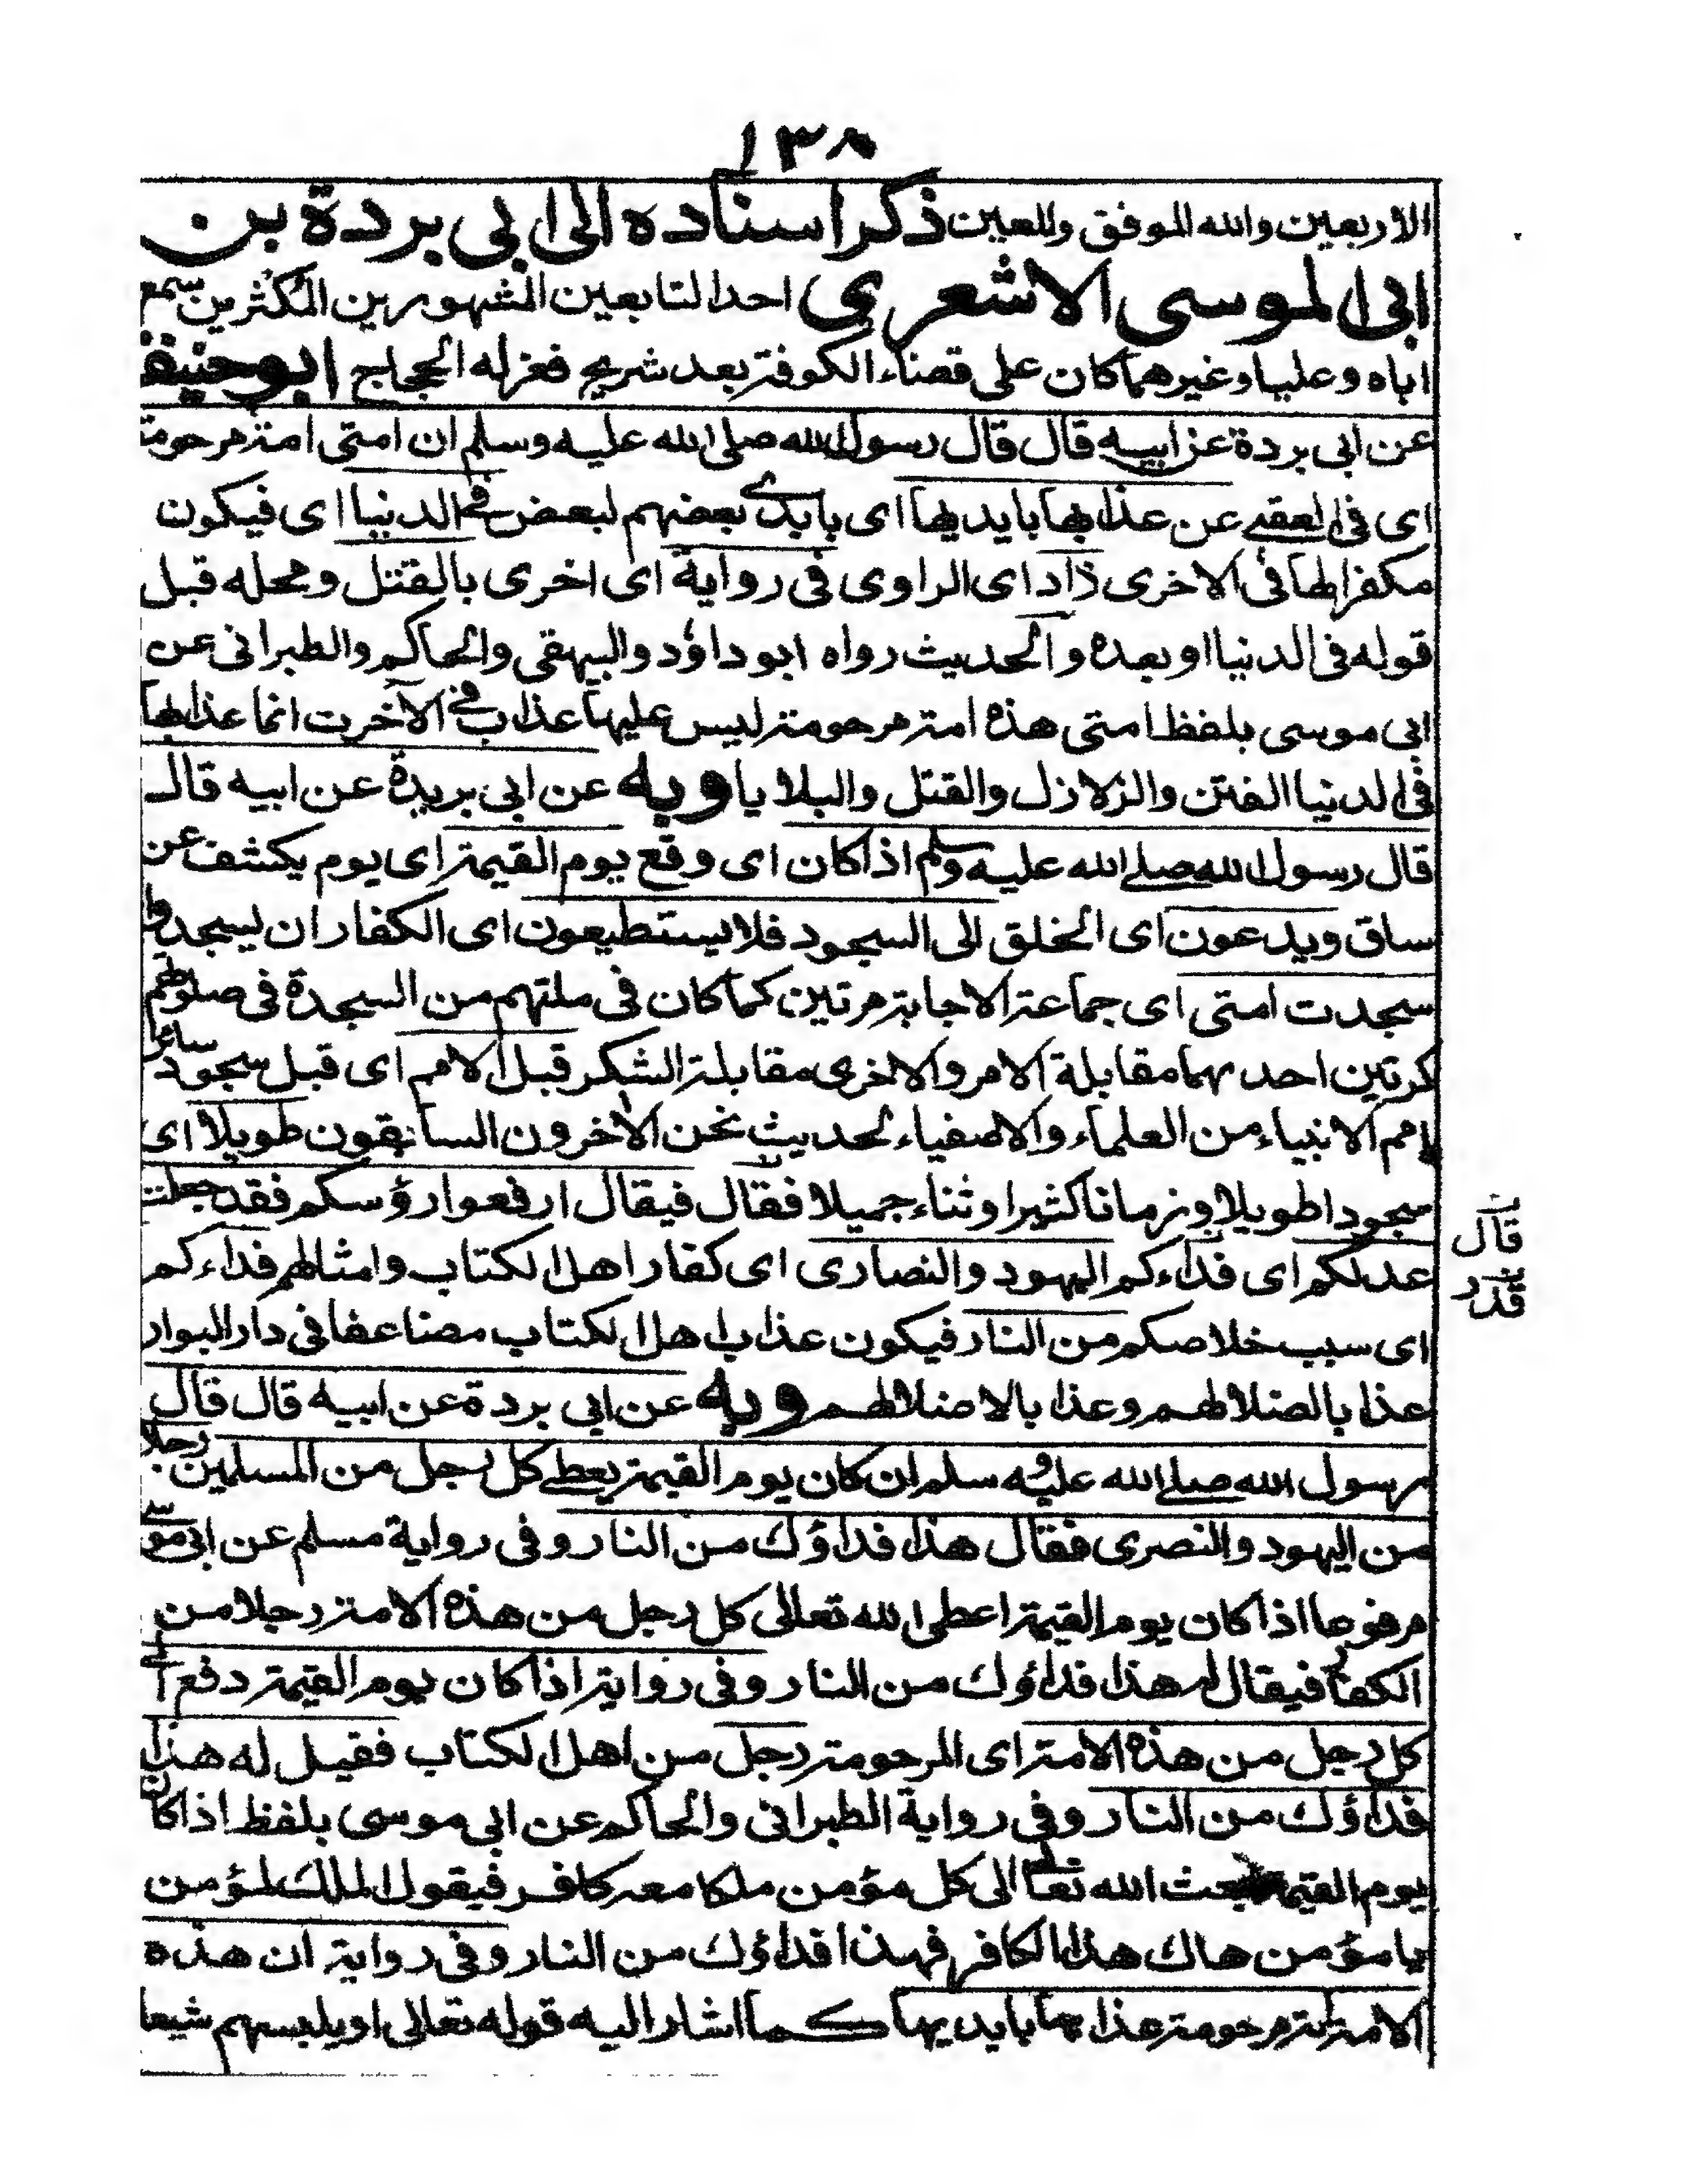 ١٣٨
الاربعين والله الموفق والمعين ذكر اسناده الى ابي بردة بن
ابي الموسى الاشعري احد التابعين المشهورين المكثرين سمع
اباه وعليا وغيرهما كان على قضاء الكوفة بعد شريح فعزله الحجاج ابو حنيفة
عن ابي بردة عن ابيه قال قال رسول الله صلى الله عليه وسلم ان امتي امة مرحومة
اي في العقبى عن عذابها بايديها اي بايدي بعضهم لبعض في الدنيا اي فيكون
مكفرا لها في الاخرى زاد اي الراوي في رواية اي اخرى بالقتل ومحله قبل
قوله في الدنيا او بعده والحديث رواه ابو داؤد والبيهقي والحاكم والطبراني عن
ابي موسى بلفظ امتي هذه امة مرحومة ليس عليها عذاب في الآخرت انما عذابها
في الدنيا الفتن والزلازل والقتل والبلايا وبه عن ابي بريدة عن ابيه قال
قال رسول الله صلى الله عليه وسلم اذا كان اي وقع يوم القيمة اي يوم يكشف عن
ساق ويدعون اي الخلق الى السجود فلا يستطيعون اي الكفار ان يسجدوا
سجدت امتي اي جماعة الاجابة مرتين كما كان في ملتهم من السجدة في صلوتهم
كرتين احدهما مقابلة الامر والاخرى مقابلة الشكر قبل الامم اي قبل سجود سائر
امم الانبياء من العلماء والاصفياء لحديث نحن الآخرون السابقون طويلا اي
سجودا طويلا وزمانا كثيرا وثناء جميلا فقال فيقال ارفعوا رؤسكم فقد جعلت
قال
عدلكم اي فداءكم اليهود والنصارى اي كفار اهل الكتاب وامثالهم فداءكم
قدر
اي سبب خلاصكم من النار فيكون عذاب اهل الكتاب مضاعفا في دار البوار
عذابا لضلالهم وعذابا لاضلالهم وبه عن ابي بردة عن ابيه قال قال
رسول الله صلى الله عليه وسلم ان كان يوم القيمة يعطى كل رجل من المسلمين رجلا
من اليهود والنصرى فقال هذا فداؤك من النار وفي رواية مسلم عن ابي موسى
مرفوعا اذا كان يوم القيمة اعطى الله تعالى كل رجل من هذه الامة رجلا من
الكفار فيقال له هذا فداؤك من النار وفي رواية اذا كان يوم القيمة دفع الى
كل رجل من هذه الامة اي المرحومة رجل من اهل الكتاب فقيل له هذا
فداؤك من النار وفي رواية الطبراني والحاكم عن ابي موسى بلفظ اذا كان
يوم القيمة بعث الله تعالى الى كل مؤمن ملكا معه كافر فيقول الملك للمؤمن
يا مؤمن هاك هذا الكافر فهذا فداؤك من النار وفي رواية ان هذه
الامة امة مرحومة عذابها بايديها كما اشار اليه قوله تعالى او يلبسهم شيعا